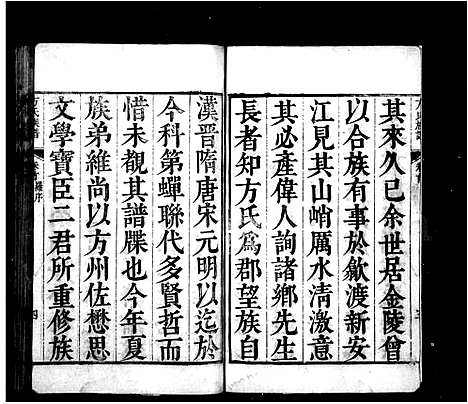 其來久已余世居金陵曾
以合族有事於歙渡新安
江見其山峭厲水清激意
其必產偉人詢諸鄉先生
長者知方氏為郡望族自
漢晉隋唐宋元明以迄於
今科第蟬聯代多賢哲而
惜未覩其譜牒也今年夏
族弟維尚以方州佐懋思
文學寶臣二君所重修族
方氏族譜
序
四